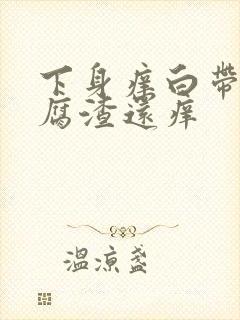 下身痒白带
腐渣还痒
温凉盏